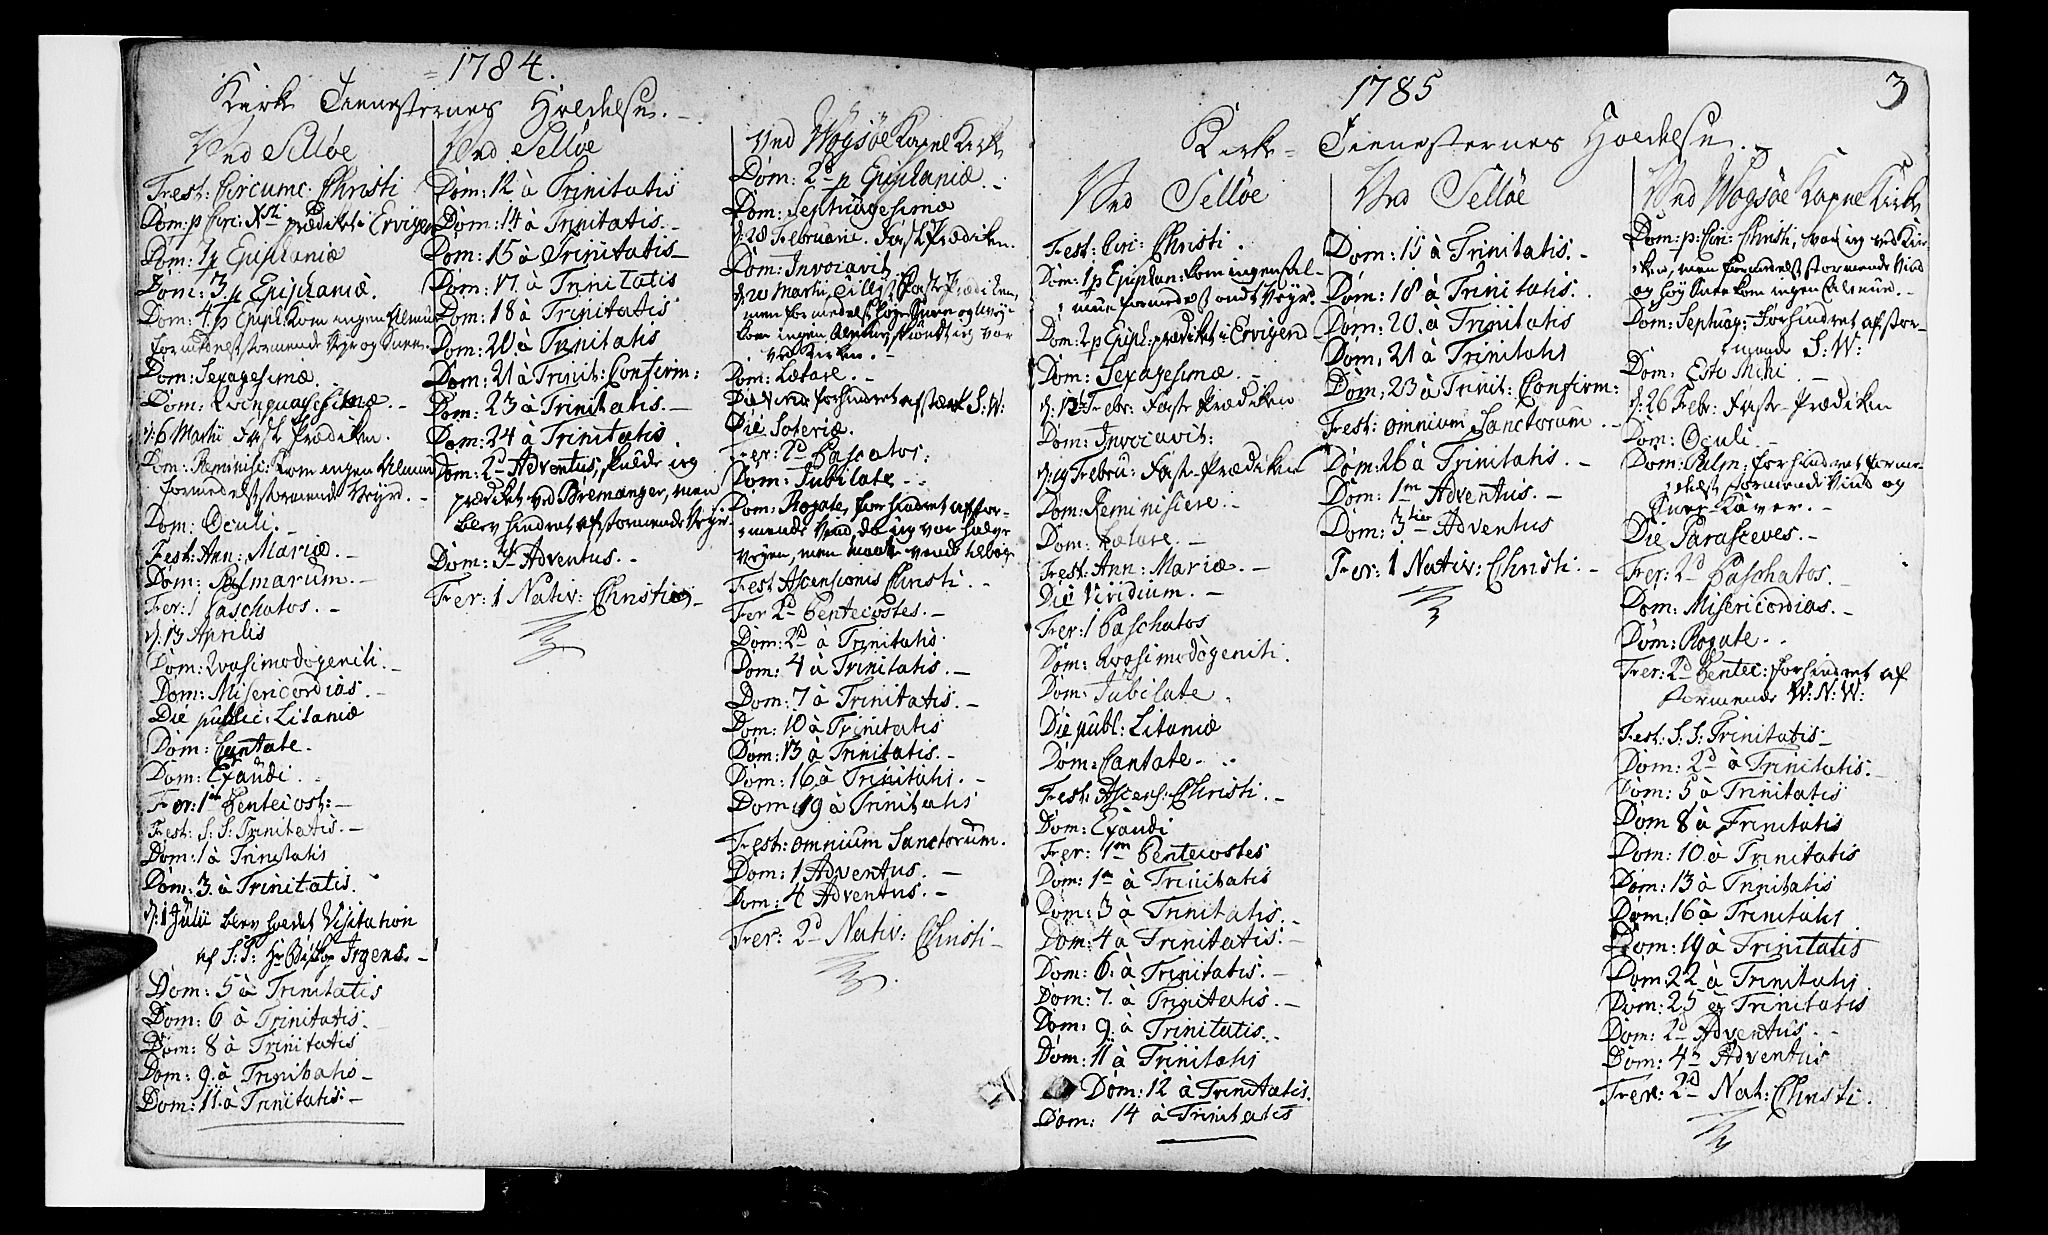 1784.
Kirke Tienesternes Holdelse.
Ved Selløe
Fest: Circumc: Christi
Dom: p Circ: Xsti prædiket i Ervigen
Dom: 1 p Epiphaniæ
Dom: 3 p Epiphaniæ.
Dom: 4 p Epiph: kom ingen Almue
formedelst stormende Vejr og Snee.
Dom: Sexagesimæ
Dom: Qvinquagesimæ.
d: 6 Martii Faste Prædiken.
Dom: Reminisc: kom ingen Almue
formedelst stormende Veyrd.
Dom: Oculi.
Fest: Ann: Mariæ.
Dom: Palmarum.
Fer: 1 Paschatos.
d: 13 Aprilis
Dom: Qvasimodogeniti.
Dom: Misericordias.
Die public: Litaniæ
Dom: Cantate.
Dom: Exaudi.
Fer: 1 Pentecost:
Fest: S: S: Trinitatis.
Dom: 1 à Trinitatis
Dom: 3. à Trinitatis.
d: 1 Julii blev holdet Visitation
af S: T: Hr Biskop Irgens.
Dom: 5 à Trinitatis
Dom: 6 à Trinitatis.
Dom: 8 à Trinitatis
Dom: 9. à Trinitatis
Dom: 11. à Trinitatis.
Ved Selløe
Dom: 12 à Trinitatis
Dom: 14 à Trinitatis.
Dom: 15 à Trinitatis
Dom: 17. à Trinitatis
Dom: 18 à Trinitatis
Dom: 20. à Trinitatis
Dom: 21 à Trinit: Confirm:
Dom: 23 à Trinitatis.
Dom: 24 à Trinitatis
Dom: 2d Adventus, skulde jeg
prædiket ved Bremanger, men
blev hindret af stormende Vejr.
Dom: 3d Adventus.
Fer: 1 Nativ: Christi
Ved Wogsøe Kapel Kirke
Dom: 2d p Epiphaniæ.
Dom: Septuagesimæ
d: 28 Februarii. Faste Prædiken.
Dom: Invocavit
d: 20 Martii, Faste Prædiken,
men formedelst høy Snee og
kom ingen Almue, skiøndt jeg var
ved Kirken.
Dom: Lætare.
Die Virid: forhindret af stærk S: W:
Die Soteriæ.
Fer: 2d Paschatos.
Dom: Jubilate
Dom: Rogate, forhindret af stor-
mende Vind, da jeg var halve
Vejen, men maate vende tilbage
Fest Ascensionis Christi.
Fer 2d Pentecostes.
Dom: 2d à Trinitatis
Dom: 4 à Trinitatis.
Dom: 7 à Trinitatis.
Dom: 10 à Trinitatis
Dom: 13 à Trinitatis.
Dom: 16 à Trinitatis.
Dom: 19 à Trinitatis
Fest: omnium Sanctorum.
Dom: 1 Adventus.
Dom: 4 Adventus.
Fer: 2d Nativ: Christi
1785
3
Kirke-Tienesternes Holdelse.
Ved Selløe
Fest: Circ: Christi.
Dom: 1 p Epiphan: kom ingen Al-
mue formedelst ondt Veyrd.
Dom: 2 p Epiph: prædiket i Ervigen
Dom: Sexagesimæ.
d: 12 Febr: Faste Prædiken
Dom: Invocavit:
d: 19 Febru: Faste-Prædiken
Dom: Reminiscere.
Dom: Lætare.
Fest: Ann: Mariæ.
Die Viridium.
Fer: 1 Paschatos
Dom: Qvasimodogeniti.
Dom: Jubilate
Die publ: Litaniæ
Dom: Cantate.
Fest: Ascens: Christi.
Dom: Exaudi
Fer: 1m Pentecostes
Dom: 1m à Trinitatis
Dom: 3 à Trinitatis.
Dom: 4 à Trinitatis.
Dom: 6. à Trinitatis.
Dom: 7. à Trinitatis.
Dom: 9. à Trinitatis.
Dom: 11 à Trinitatis
Dom: 12 à Trinitatis.
Dom: 14 à Trinitatis
Ved Selløe
Dom: 15 à Trinitatis.
Dom: 18 à Trinitatis.
Dom: 20. à Trinitatis
Dom: 21 à Trinitatis
Dom: 23 à Trinit: Confirm:
Fest: omnium Sanctorum.
Dom: 26 à Trinitatis.
Dom: 1m Adventus.
Dom: 3tie Adventus
Fer: 1 Nativ: Christi.
Ved Wogsøe Kapel Kirke
Dom: p: Circ: Christi, var jeg ved Kir-
ken, men formedelst stormende Vind
og høy Snee kom ingen Almue.
Dom: Septuag: Forhindret af stor-
mende S: W:
Dom: Esto Mihi
d: 26 Febr: Faste-Prædiken
Dom: Oculi.
Dom: Palm: forhindret forme-
delst stormende Vind og
Snee-Kaver.
Die Parasceves.
Fer: 2d Paschatos.
Dom: Misericordias.
Dom: Rogate.
Fer: 2d Pentec: forhindret af
stormende W: N: W:
Fest: S: S: Trinitatis
Dom: 2d à Trinitatis.
Dom: 5 à Trinitatis
Dom 8 à Trinitatis
Dom: 10. à Trinitatis
Dom: 13 à Trinitatis
Dom: 16 à Trinitatis
Dom: 19 à Trinitatis
Dom 22 à Trinitatis
Dom: 25 à Trinitatis
Dom: 2d Adventus.
Dom: 4 Adventus
Fer: 2d Nat: Christi.